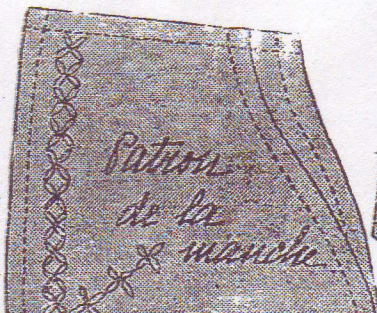 Patron
de la
manche